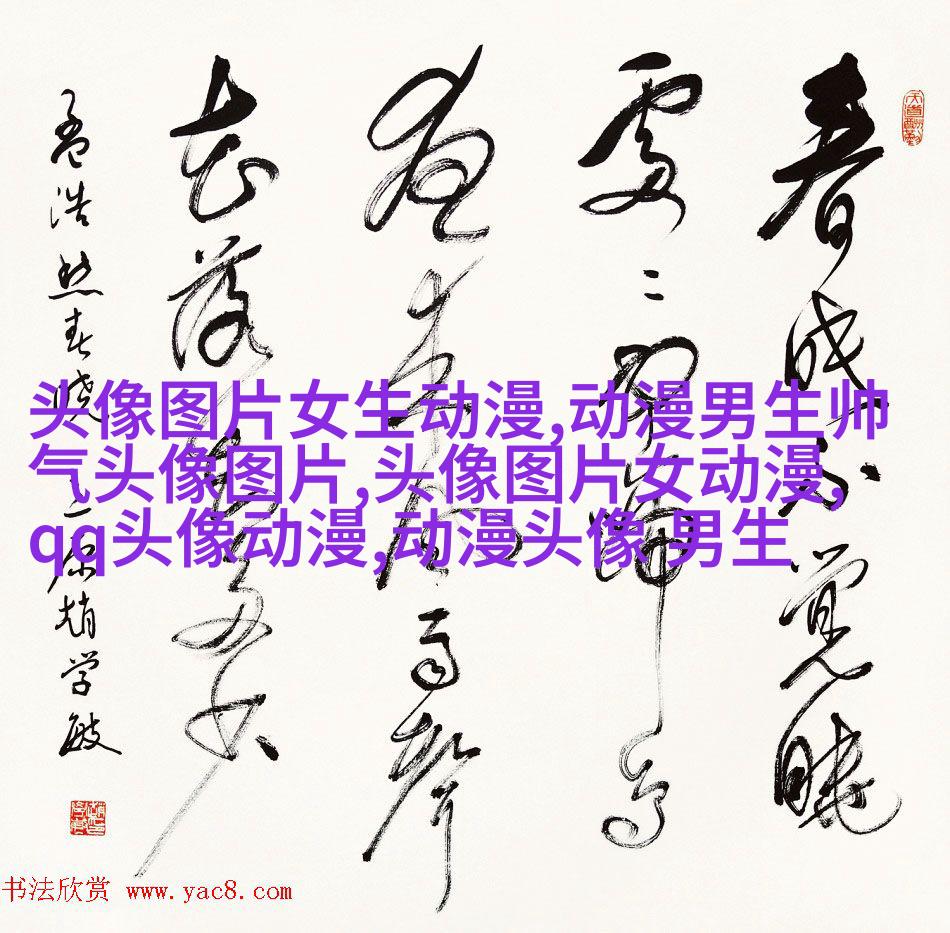 春眠不觉晓
处二闻啼鸟
夜来风雨声
花落知多少
孟浩然春晓 三原赵学敏
天道酬勤
头像图片女生动漫,动漫男生帅
气头像图片,头像图片女动漫,
qq头像动漫,动漫头像 男生
书法欣赏 www.yac8.com